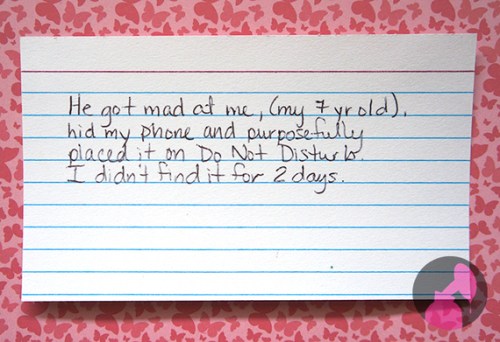 He got mad at me, (my 7 yr old),
hid my phone and purposefully
placed it on Do Not Disturb.
I didn't find it for 2 days.